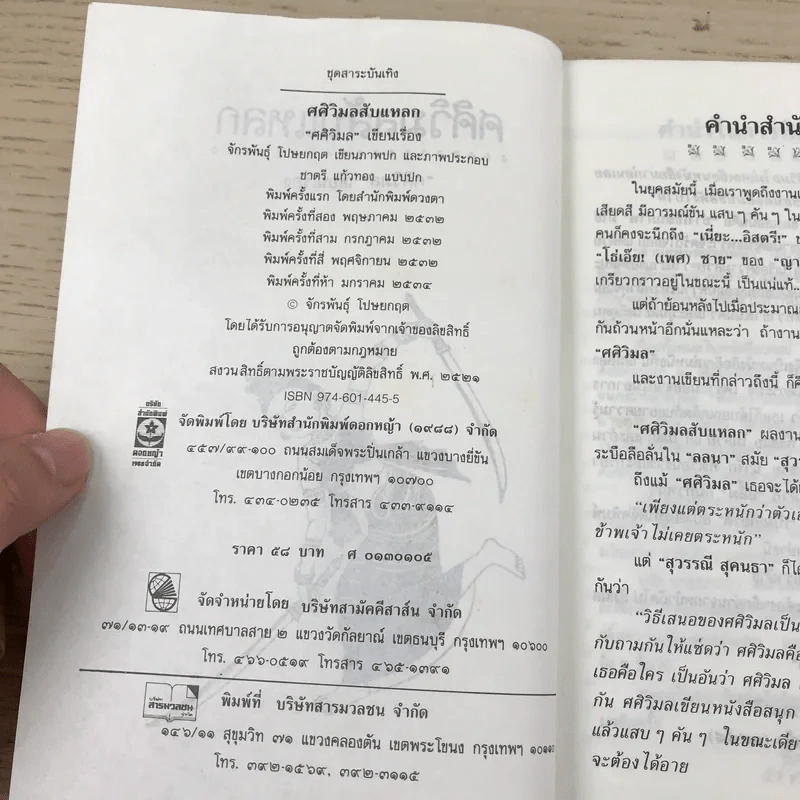 ชุดสาระบันเทิง
ศศิวิมลสับแหลก
"ศศิวิมล" เขียนเรื่อง
จักรพันธุ์ โปษยกฤต เขียนภาพปก และภาพประกอบ
ชาตรี แก้วทอง แบบปก
พิมพ์ครั้งแรก โดยสำนักพิมพ์ดวงตา
พิมพ์ครั้งที่สอง พฤษภาคม ๒๕๓๒
พิมพ์ครั้งที่สาม กรกฎาคม ๒๕๓๒
พิมพ์ครั้งที่สี่ พฤศจิกายน ๒๕๓๒
พิมพ์ครั้งที่ห้า มกราคม ๒๕๓๔
© จักรพันธุ์ โปษยกฤต
โดยได้รับการอนุญาตจัดพิมพ์จากเจ้าของลิขสิทธิ์
ถูกต้องตามกฎหมาย
สงวนสิทธิ์ตามพระราชบัญญัติลิขสิทธิ์ พ.ศ. ๒๕๒๑
ISBN 974-601-445-5
บริษัท
สำนักพิมพ์
ดอกหญ้า
จัดพิมพ์โดย บริษัทสำนักพิมพ์ดอกหญ้า (๑๙๘๘) จำกัด
๔๕๗/๙๙-๑๐๐ ถนนสมเด็จพระปิ่นเกล้า แขวงบางยี่ขัน
เขตบางกอกน้อย กรุงเทพฯ ๑๐๗๐๐
โทร. ๔๓๔-๐๒๓๕ โทรสาร ๔๓๓-๙๑๑๔
ราคา ๕๘ บาท ศ ๐๑๓๐๑๐๕
จัดจำหน่ายโดย บริษัทสามัคคีสาส์น จำกัด
๗๑/๑๓-๑๙ ถนนเทศบาลสาย ๒ แขวงวัดกัลยาณ์ เขตธนบุรี กรุงเทพฯ ๑๐๖๐๐
โทร. ๔๖๖-๐๕๑๙ โทรสาร ๔๖๕-๑๓๙๑
บริษัท
สารมวลชน
พิมพ์ที่ บริษัทสารมวลชน จำกัด
๑๔๖/๑๑ สุขุมวิท ๗๑ แขวงคลองตัน เขตพระโขนง กรุงเทพฯ
โทร. ๓๙๒-๑๕๖๙, ๓๙๒-๓๑๑๕
คำนำสำนั
ในยุคสมัยนี้ เมื่อเราพูดถึงงานเ
เสียดสี มีอารมณ์ขัน แสบ ๆ คัน ๆ ใน
คนก็คงจะนึกถึง "เนี่ยะ...อิสตรี!"
"โธ่เอ๊ย! (เพศ) ชาย" ของ "ญา
เกรียวกราวอยู่ในขณะนี้ เป็นแน่แท้...
แต่ถ้าย้อนหลังไปเมื่อประมาณ
กันถ้วนหน้าอีกนั่นแหละว่า ถ้างาน
"ศศิวิมล"
และงานเขียนที่กล่าวถึงนี้ ก็คื
"ศศิวิมลสับแหลก" ผลงาน
ระบือลือลั่นใน "ลลนา" สมัย "สุว
ถึงแม้ "ศศิวิมล" เธอจะได้
"เพียงแต่ตระหนักว่าตัวเอ
ข้าพเจ้าไม่เคยตระหนัก"
แต่ "สุวรรณี สุคนธา" ก็ได้
กันว่า
"วิธีเสนอของศศิวิมลเป็น
กับถามกันให้แซ่ดว่า ศศิวิมลคือ
เธอคือใคร เป็นอันว่า ศศิวิมล
กัน ศศิวิมลเขียนหนังสือสนุก
แล้วแสบ ๆ คัน ๆ ในขณะเดีย
จะต้องได้อาย